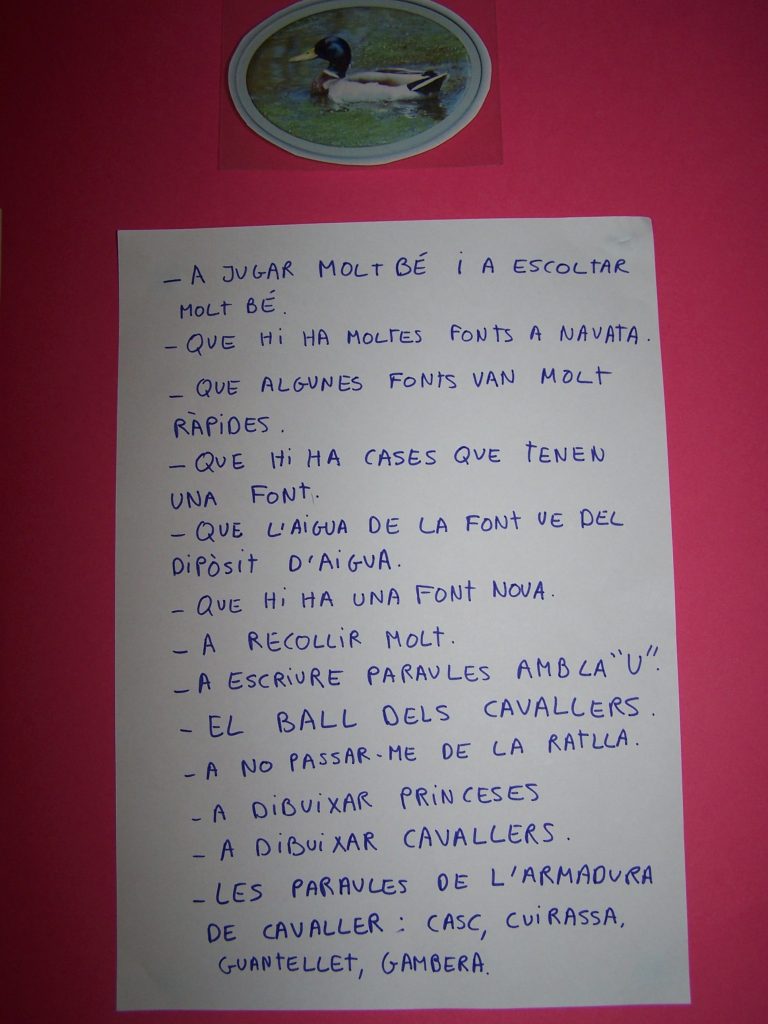 - A JUGAR MOLT BÉ I A ESCOLTAR
MOLT BÉ.
- QUE HI HA MOLTES FONTS A NAVATA.
- QUE ALGUNES FONTS VAN MOLT
RÀPIDES.
- QUE HI HA CASES QUE TENEN
UNA FONT.
- QUE L'AIGUA DE LA FONT VE DEL
DIPÒSIT D'AIGUA.
- QUE HI HA UNA FONT NOVA.
- A RECOLLIR MOLT.
- A ESCRIURE PARAULES AMB LA "U".
- EL BALL DELS CAVALLERS.
- A NO PASSAR-ME DE LA RATLLA.
- A DIBUIXAR PRINCESES
- A DIBUIXAR CAVALLERS.
- LES PARAULES DE L'ARMADURA
DE CAVALLER: CASC, CUIRASSA,
GUANTELLET, GAMBERA.